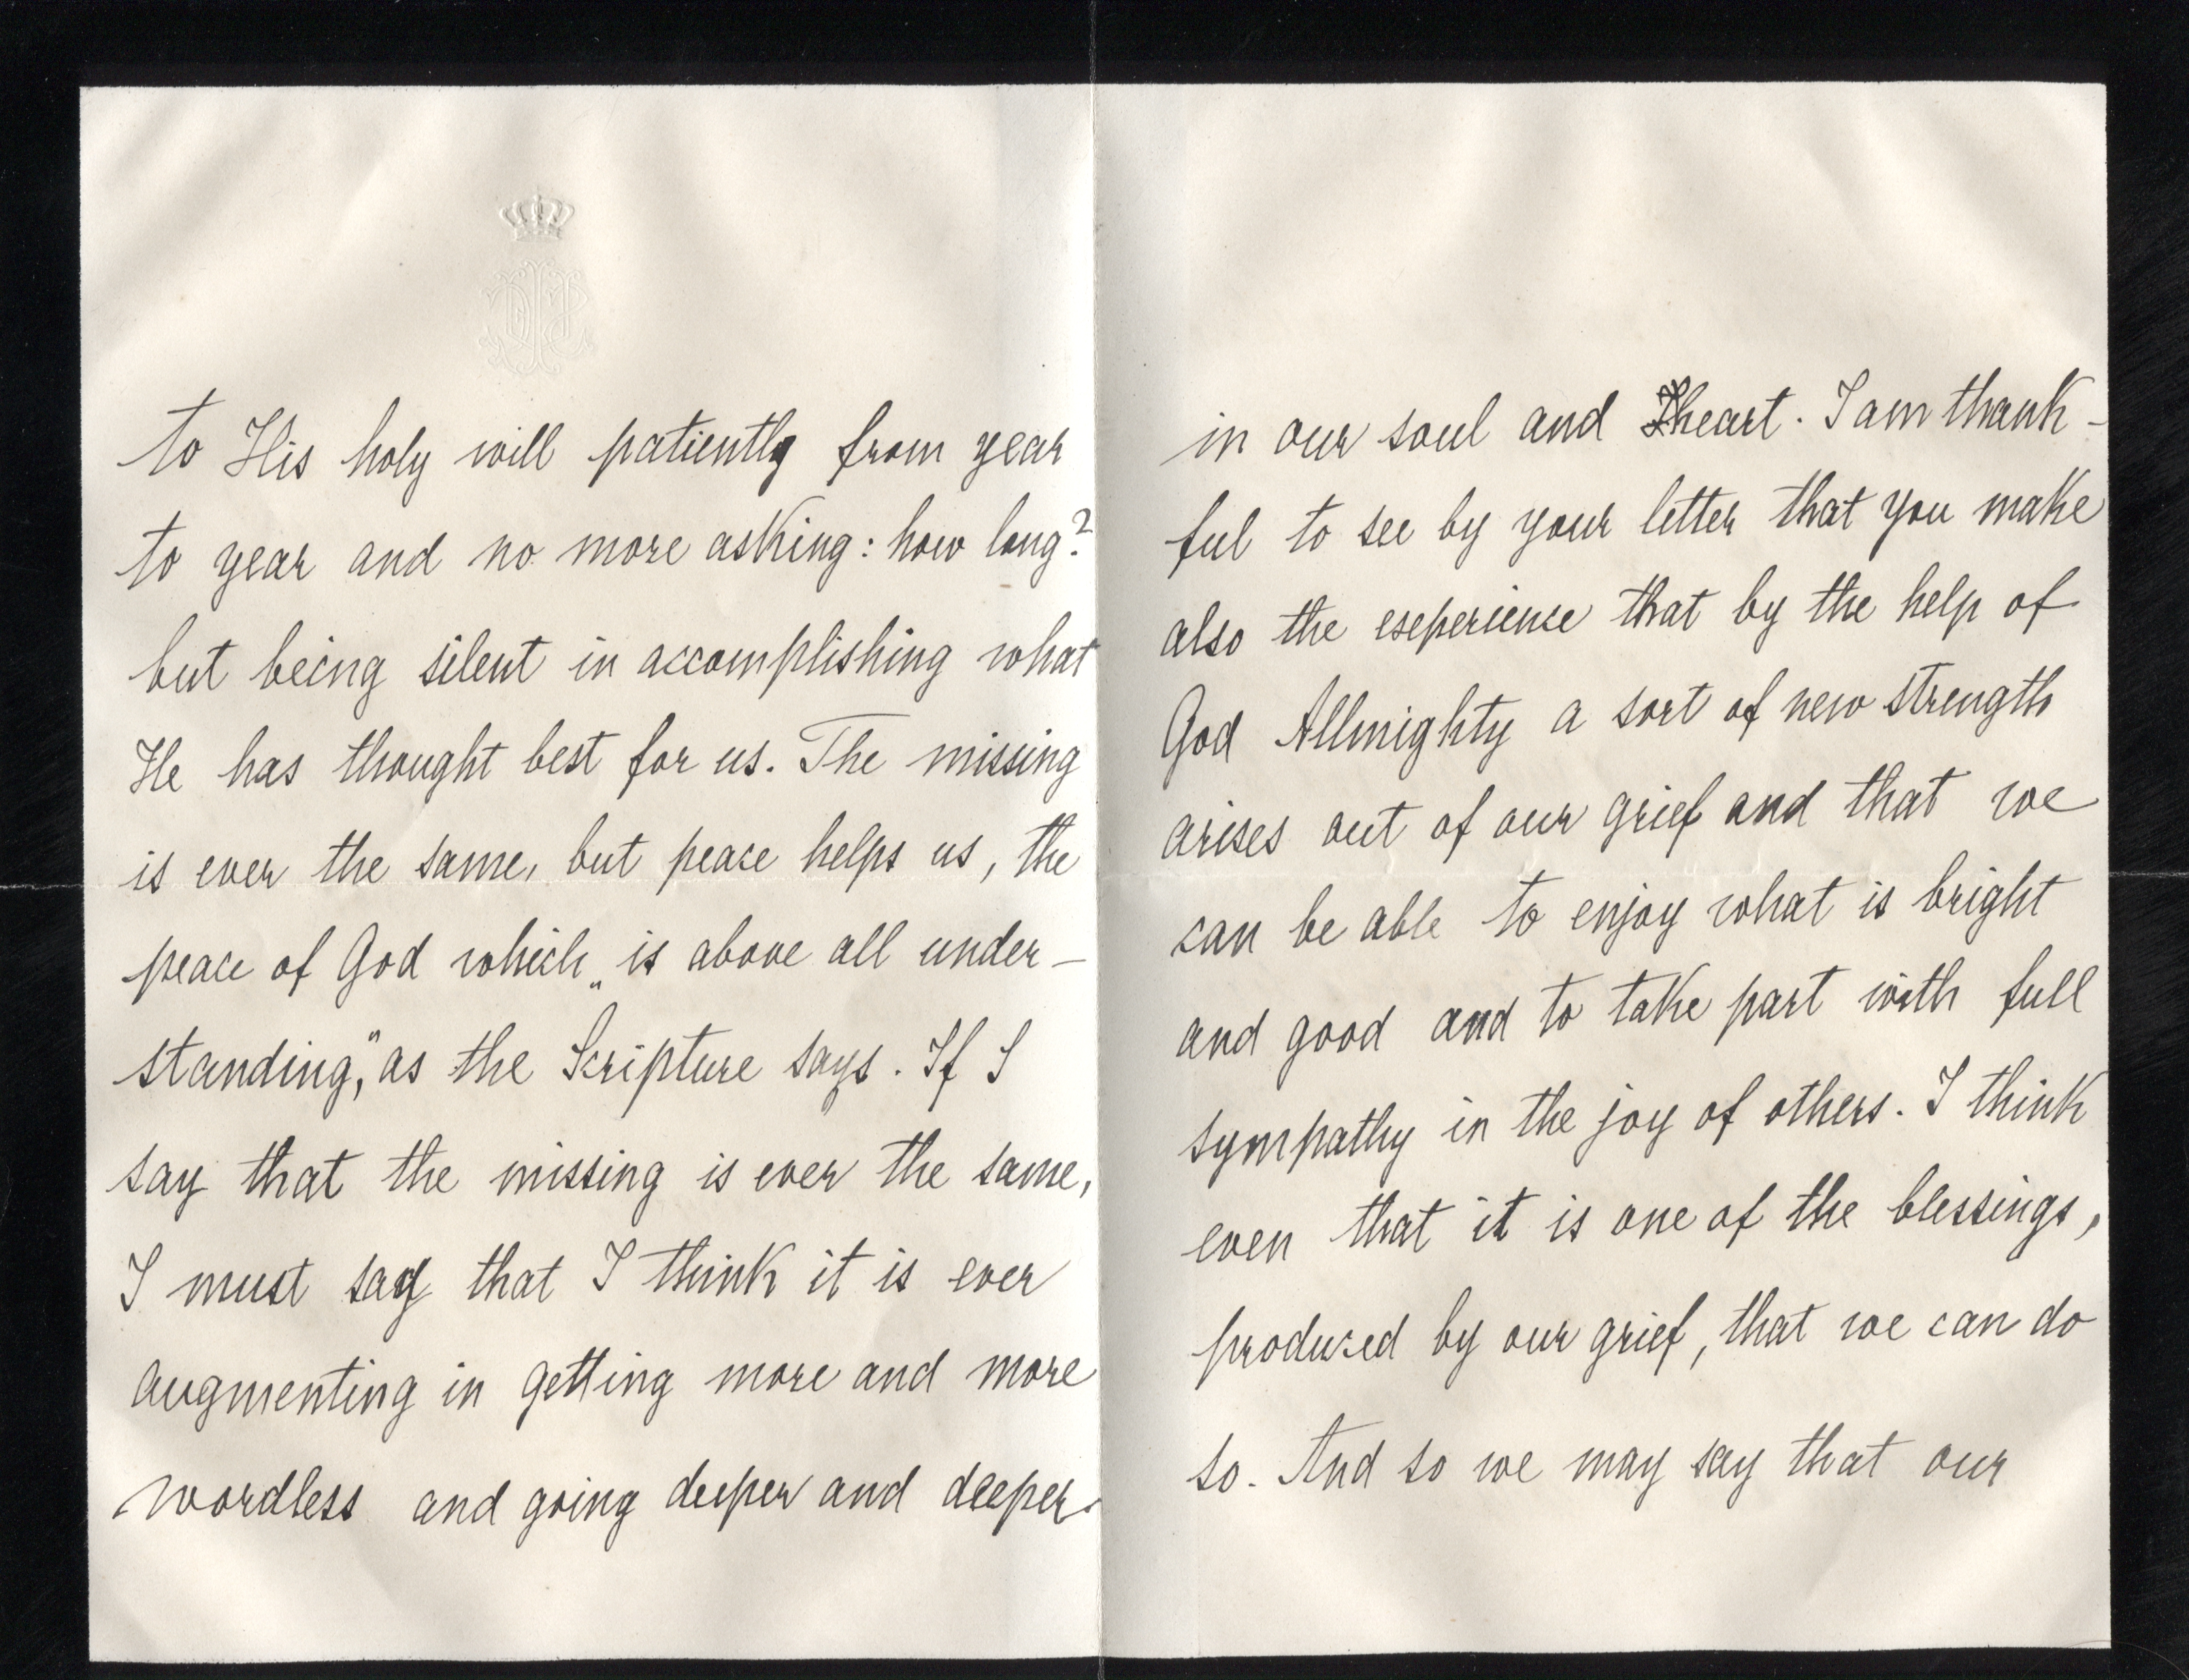 to His holy will patiently from year
to year and no more asking: how long?
but being silent in accomplishing what
He has thought best for us. The missing
is ever the same, but peace helps us, the
peace of God which „is above all under-
standing," as the Scripture says. If I
say that the missing is ever the same,
I must say that I think it is ever
augmenting in getting more and more
wordless and going deeper and deeper
in our soul and heart. I am thank-
ful to see by your letter that you make
also the experience that by the help of
God Allmighty a sort of new strength
arises out of our grief and that we
can be able to enjoy what is bright
and good and to take part with full
sympathy in the joy of others. I think
even that it is one of the blessings,
produced by our grief, that we can do
so. And so we may say that our